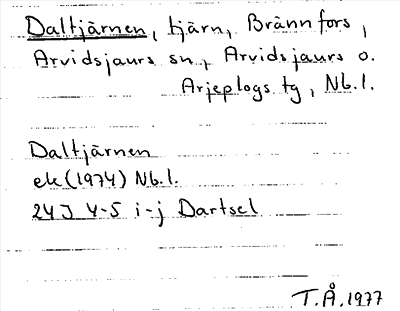 Daltjärnen, tjärn, Brännfors,
Arvidsjaurs sn, Arvidsjaurs o.
Arjeplogs tg, Nb.l.
Daltjärnen
ek(1974) Nb.l.
24J 4-5 i-j Dartsel
T.Å.1977